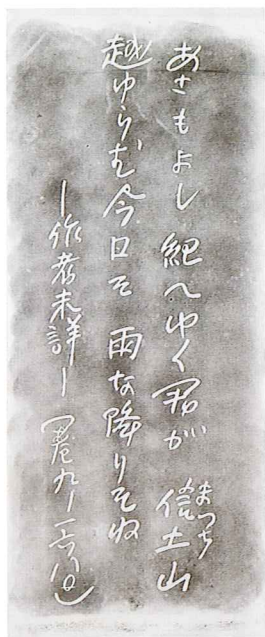 あさもよし 紀へゆく君が 信土山
まつち
越ゆらむ今日そ 雨な降りそね
―作者未詳― 「巻九―一六八〇」